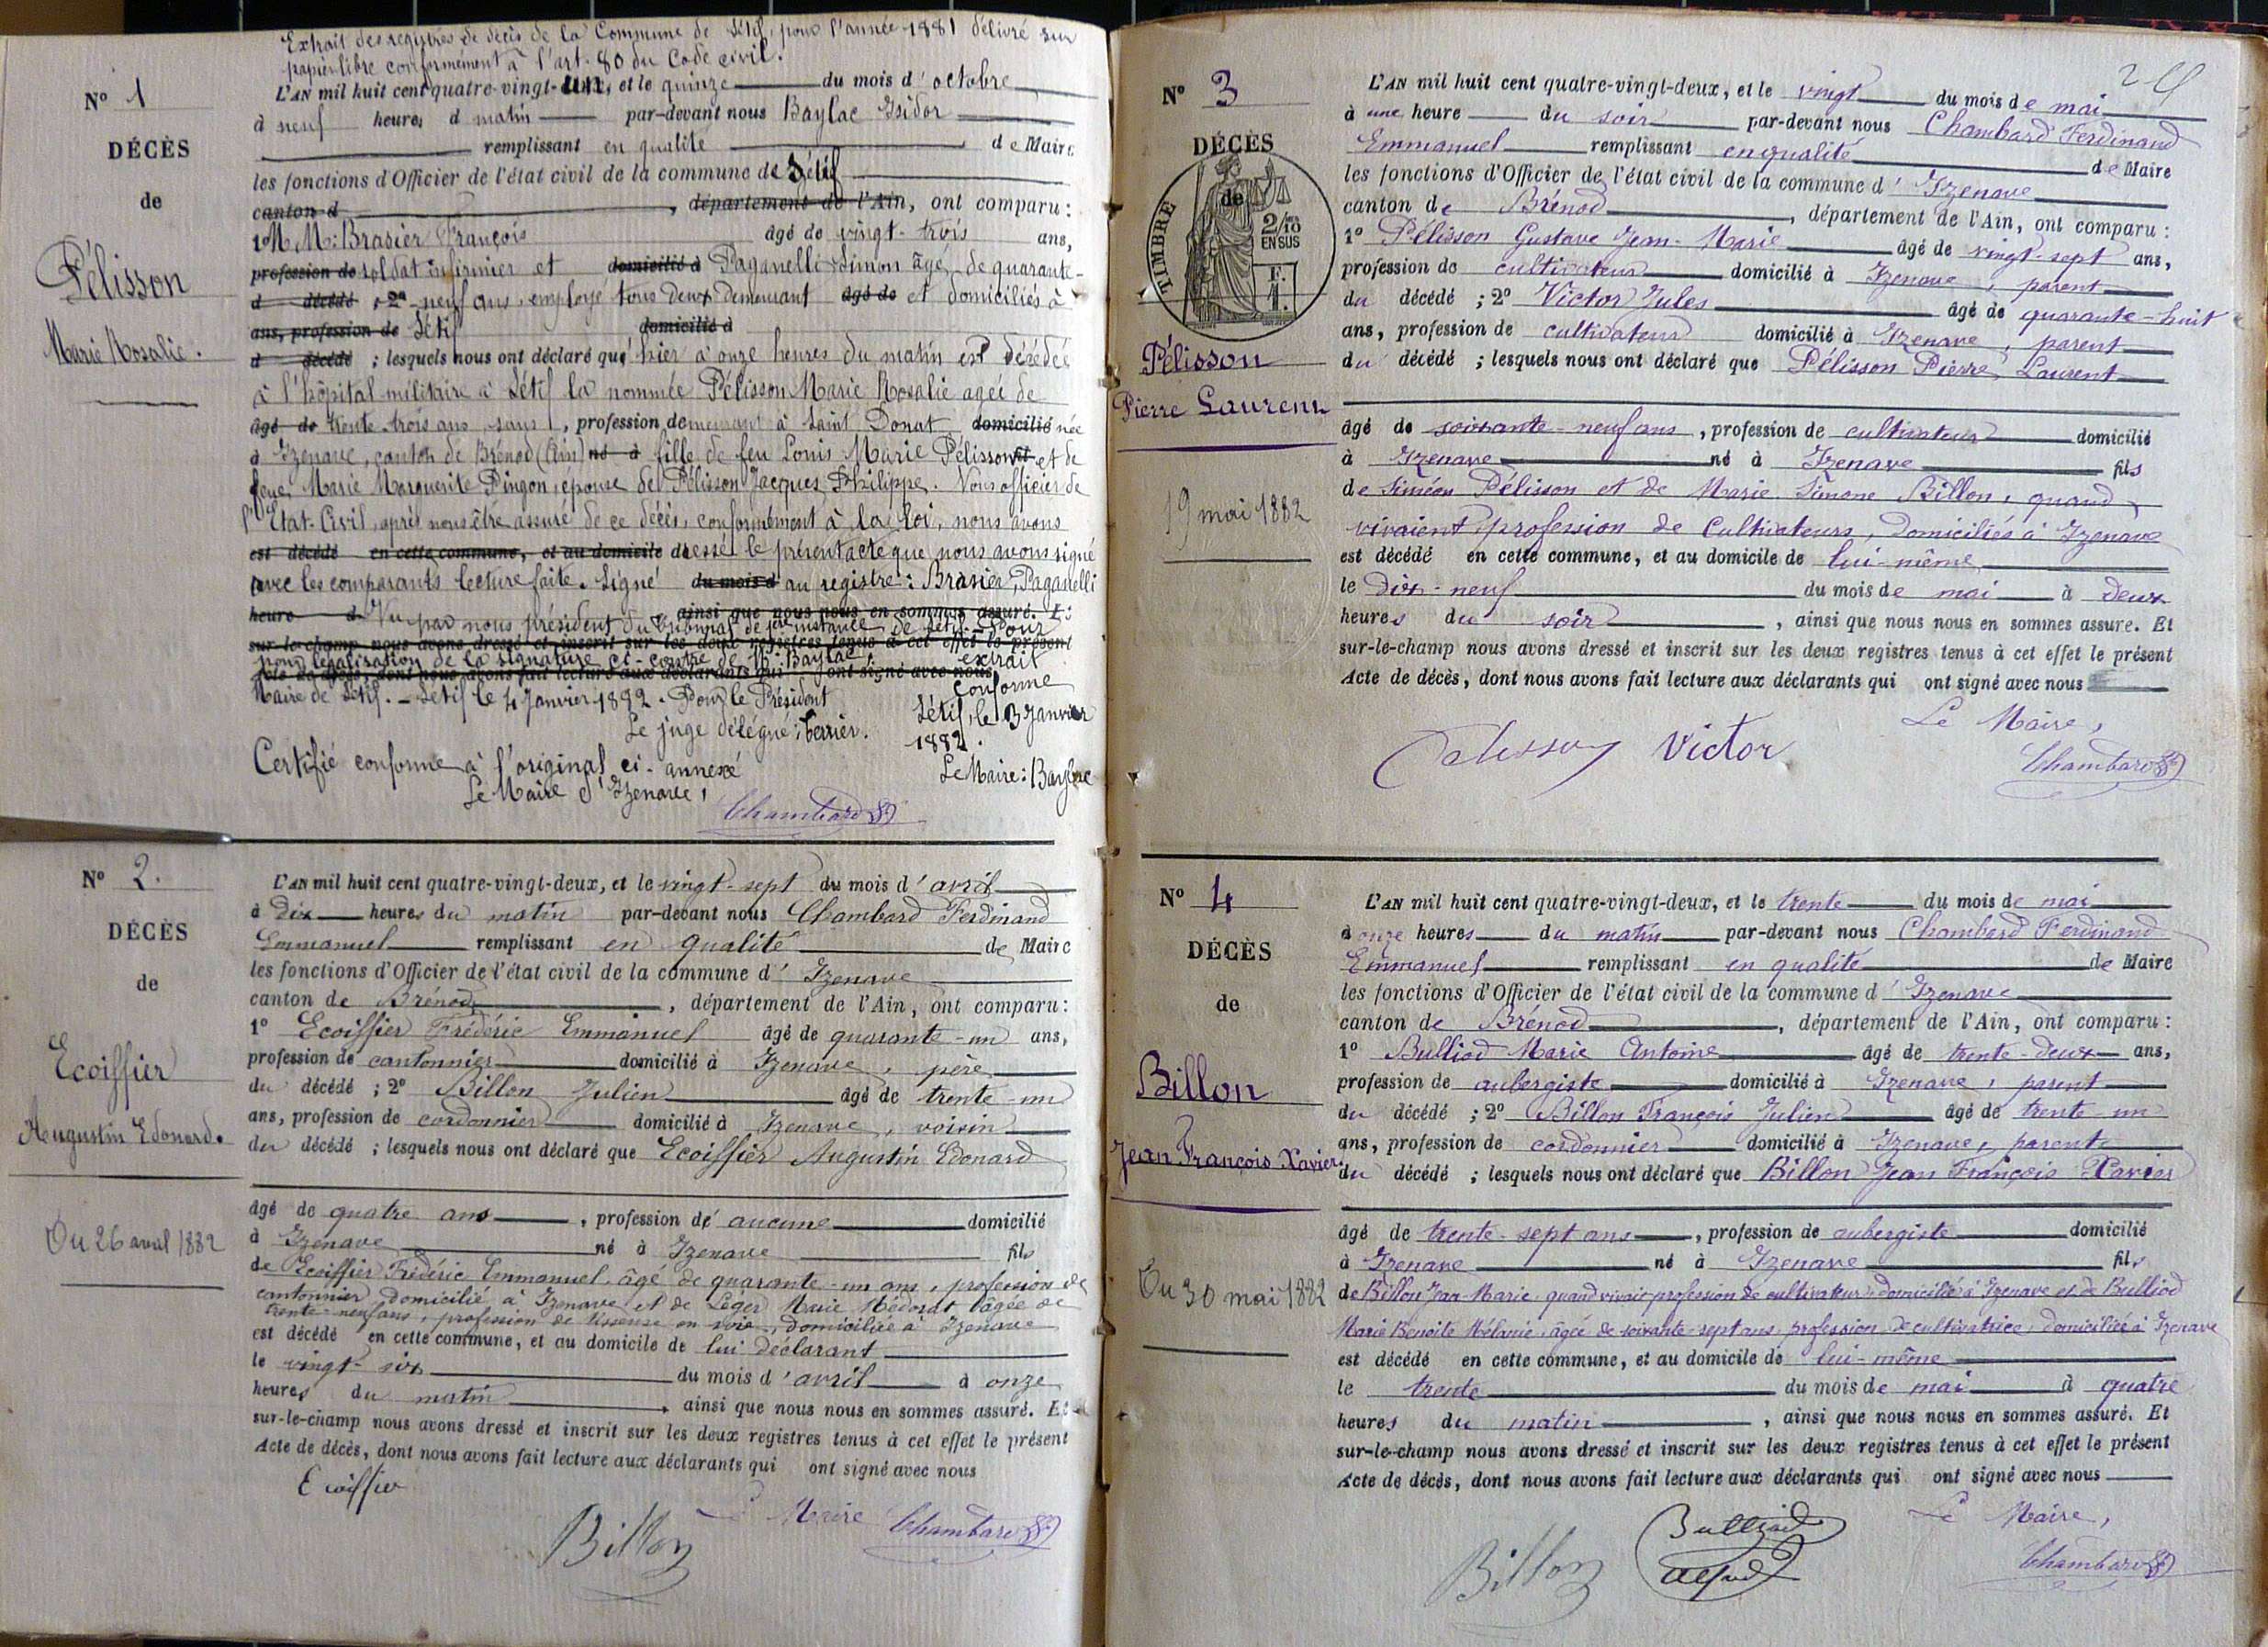 Extrait des registres de décès de la Commune de Sétif, pour l'année 1881 délivré sur
papier libre conformément à l'art. 80 du Code civil.
N° 1
L'AN mil huit cent quatre-vingt-un, et le quinze du mois d'octobre
à neuf heures d matin par-devant nous Baylac Isidor
DÉCÈS
remplissant en qualité de Maire
les fonctions d'Officier de l'état civil de la commune de Sétif
de
canton d , département de l'Ain, ont comparu :
1° M.M. Brasier François âgé de vingt-trois ans,
Pélisson
profession de soldat infirmier et domicilié à Paganelli Simon âgé de quarante-
d décédé ; 2° neuf ans, employé tous deux demeurant âgé de et domiciliés à
ans, profession de Sétif domicilié à
Marie Rosalie.
d décédé ; lesquels nous ont déclaré que hier à onze heures du matin est décédée
à l'hôpital militaire à Sétif la nommée Pélisson Marie Rosalie agée de
âgé de trente trois ans, sans , profession demeurant à Saint Donat domicilié née
à Izenave, canton de Brénod (Ain) né à fille de feu Louis Marie Pélisson et de
feue Marie Marguerite Pingon, épouse de Pélisson Jacques Philippe. Nous officier de
l'Etat-Civil, après nous être assuré de ce décès, conformément à la loi, nous avons
est décédé en cette commune, et au domicile dressé le présent acte que nous avons signé
avec les comparants lecture faite. Signé du mois d au registre : Brasier, Paganelli
heure d ainsi que nous nous en sommes assuré. Et
Vu par nous président du Tribunal de 1ère instance de Sétif Pour
sur-le-champ nous avons dressé et inscrit sur les deux registres tenus à cet effet le présent
pour légalisation de la signature ci-contre de M. Baylac, extrait
Acte de décès, dont nous avons fait lecture aux déclarants qui ont signé avec nous
conforme
Maire de Sétif. - Sétif le 4 Janvier 1882. Pour le Président
Sétif, le 3 Janvier
Le juge délégué : Cerrier. 1882.
Certifié conforme à l'original ci-annexé
Le Maire : Baylac
Le Maire d'Izenave,
Chambard
N° 2.
L'AN mil huit cent quatre-vingt-deux, et le vingt-sept du mois d'avril
à dix heures du matin par-devant nous Chambard Ferdinand
DÉCÈS
Emmanuel remplissant en qualité de Maire
les fonctions d'Officier de l'état civil de la commune d'Izenave
de
canton de Brénod , département de l'Ain, ont comparu :
1° Ecoiffier Frédéric Emmanuel âgé de quarante-un ans,
Ecoiffier
profession de cantonnier domicilié à Izenave, père
du décédé ; 2° Billon Julien âgé de trente-un
ans, profession de cordonnier domicilié à Izenave, voisin
Augustin Edouard.
du décédé ; lesquels nous ont déclaré que Ecoiffier Augustin Edouard
âgé de quatre ans , profession de aucune domicilié
Du 26 avril 1882
à Izenave né à Izenave fils
de Ecoiffier Frédéric Emmanuel, âgé de quarante-un ans, profession de
cantonnier domicilié à Izenave et de Léger Marie Médorat âgée de
trente-neuf ans, profession de tisseuse en soie, domiciliée à Izenave
est décédé en cette commune, et au domicile de lui déclarant
le vingt-six du mois d'avril à onze
heures du matin , ainsi que nous nous en sommes assuré. Et
sur-le-champ nous avons dressé et inscrit sur les deux registres tenus à cet effet le présent
Acte de décès, dont nous avons fait lecture aux déclarants qui ont signé avec nous
Ecoiffier
Billon
Le Maire Chambard
N° 3
L'AN mil huit cent quatre-vingt-deux, et le vingt du mois de mai
à une heure du soir par-devant nous Chambard Ferdinand
DÉCÈS
Emmanuel remplissant en qualité de Maire
les fonctions d'Officier de l'état civil de la commune d'Izenave
de
TIMBRE
2/10
EN SUS
F.
1.
canton de Brénod , département de l'Ain, ont comparu :
1° Pélisson Gustave Jean-Marie âgé de vingt-sept ans,
profession de cultivateur domicilié à Izenave, parent
du décédé ; 2° Victor Jules âgé de quarante-huit
ans, profession de cultivateur domicilié à Izenave, parent
Pélisson
du décédé ; lesquels nous ont déclaré que Pélisson Pierre Laurent
Pierre Laurent
âgé de soixante-neuf ans , profession de cultivateur domicilié
à Izenave né à Izenave fils
de Siméon Pélisson et de Marie Simone Billon, quand
19 mai 1882
vivaient profession de Cultivateurs, domiciliés à Izenave
est décédé en cette commune, et au domicile de lui-même
le Dix-neuf du mois de mai à deux
heures du soir , ainsi que nous nous en sommes assuré. Et
sur-le-champ nous avons dressé et inscrit sur les deux registres tenus à cet effet le présent
Acte de décès, dont nous avons fait lecture aux déclarants qui ont signé avec nous
Le Maire,
Pelisson Victor
Chambard
N° 4
L'AN mil huit cent quatre-vingt-deux, et le trente du mois de mai
à onze heures du matin par-devant nous Chambard Ferdinand
DÉCÈS
Emmanuel remplissant en qualité de Maire
les fonctions d'Officier de l'état civil de la commune d'Izenave
de
canton de Brénod , département de l'Ain, ont comparu :
1° Bulliod Marie Antoine âgé de trente-deux ans,
Billon
profession de aubergiste domicilié à Izenave, parent
du décédé ; 2° Billon François Julien âgé de trente-un
ans, profession de cordonnier domicilié à Izenave, parent
Jean François Xavier.
du décédé ; lesquels nous ont déclaré que Billon Jean François Xavier
âgé de trente-sept ans , profession de aubergiste domicilié
à Izenave né à Izenave fils
Du 30 mai 1882
de Billon Jean-Marie quand vivait profession de cultivateur domicilié à Izenave et de Bulliod
Marie Benoite Mélanie, âgée de soixante-sept ans, profession de cultivatrice, domiciliée à Izenave
est décédé en cette commune, et au domicile de lui-même
le trente du mois de mai à quatre
heures du matin , ainsi que nous nous en sommes assuré. Et
sur-le-champ nous avons dressé et inscrit sur les deux registres tenus à cet effet le présent
Acte de décès, dont nous avons fait lecture aux déclarants qui ont signé avec nous
Billon
Bulliod
Le Maire,
Chambard